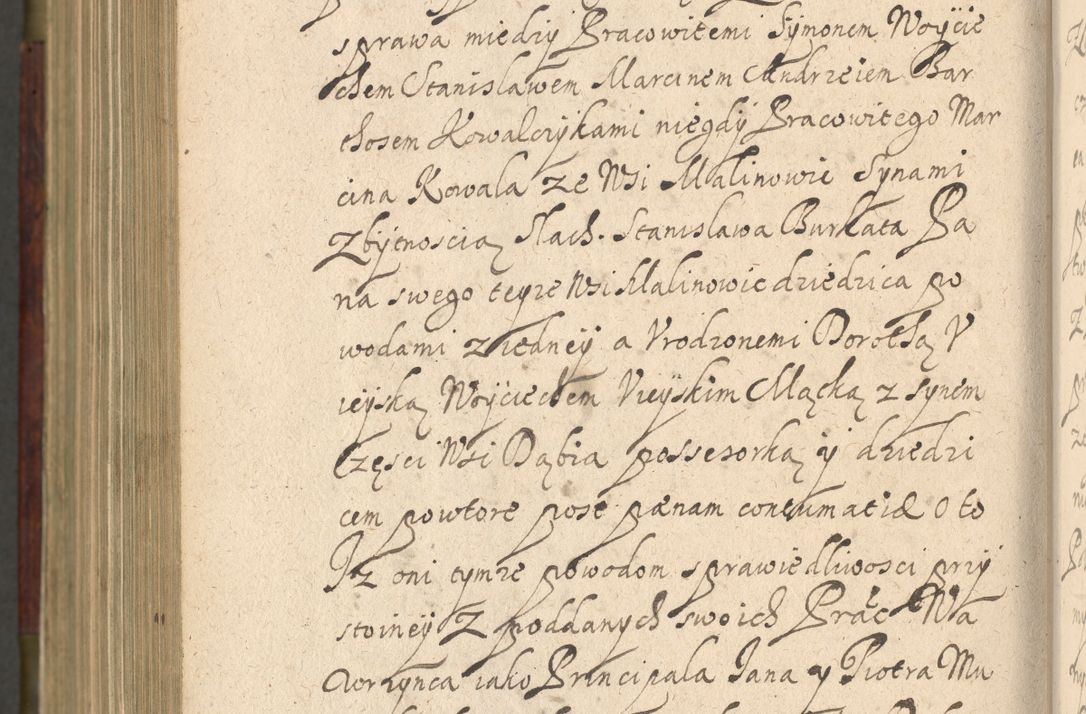 sprawa miedzy Pracowitemi Symonem Woycie
chem Stanislawem Marcinem Andrzeiem Bar
thosem Kowalczykami niegdy Pracowitego Mar
cina Kowala ze Wsi Malinowic Synami
Zbytnoscią Slach. Stanislawa Burkata Pa
na swego teyze Wsi Malinowic dziedzica po
wodami z iedney a Vrodzonemi Dorothą V
ieyską Woyciechem Vieyskim Mącką z synem
Częsci Wsi Dąbia possesorką y dziedzi
cem powtore post pænam contumatiæ O to
Iz oni tymze powodom sprawiedliwosci przy
stoiney Z poddanych swoich Prac Wa
wrzynca iako Principala Jana y Piotra Mu